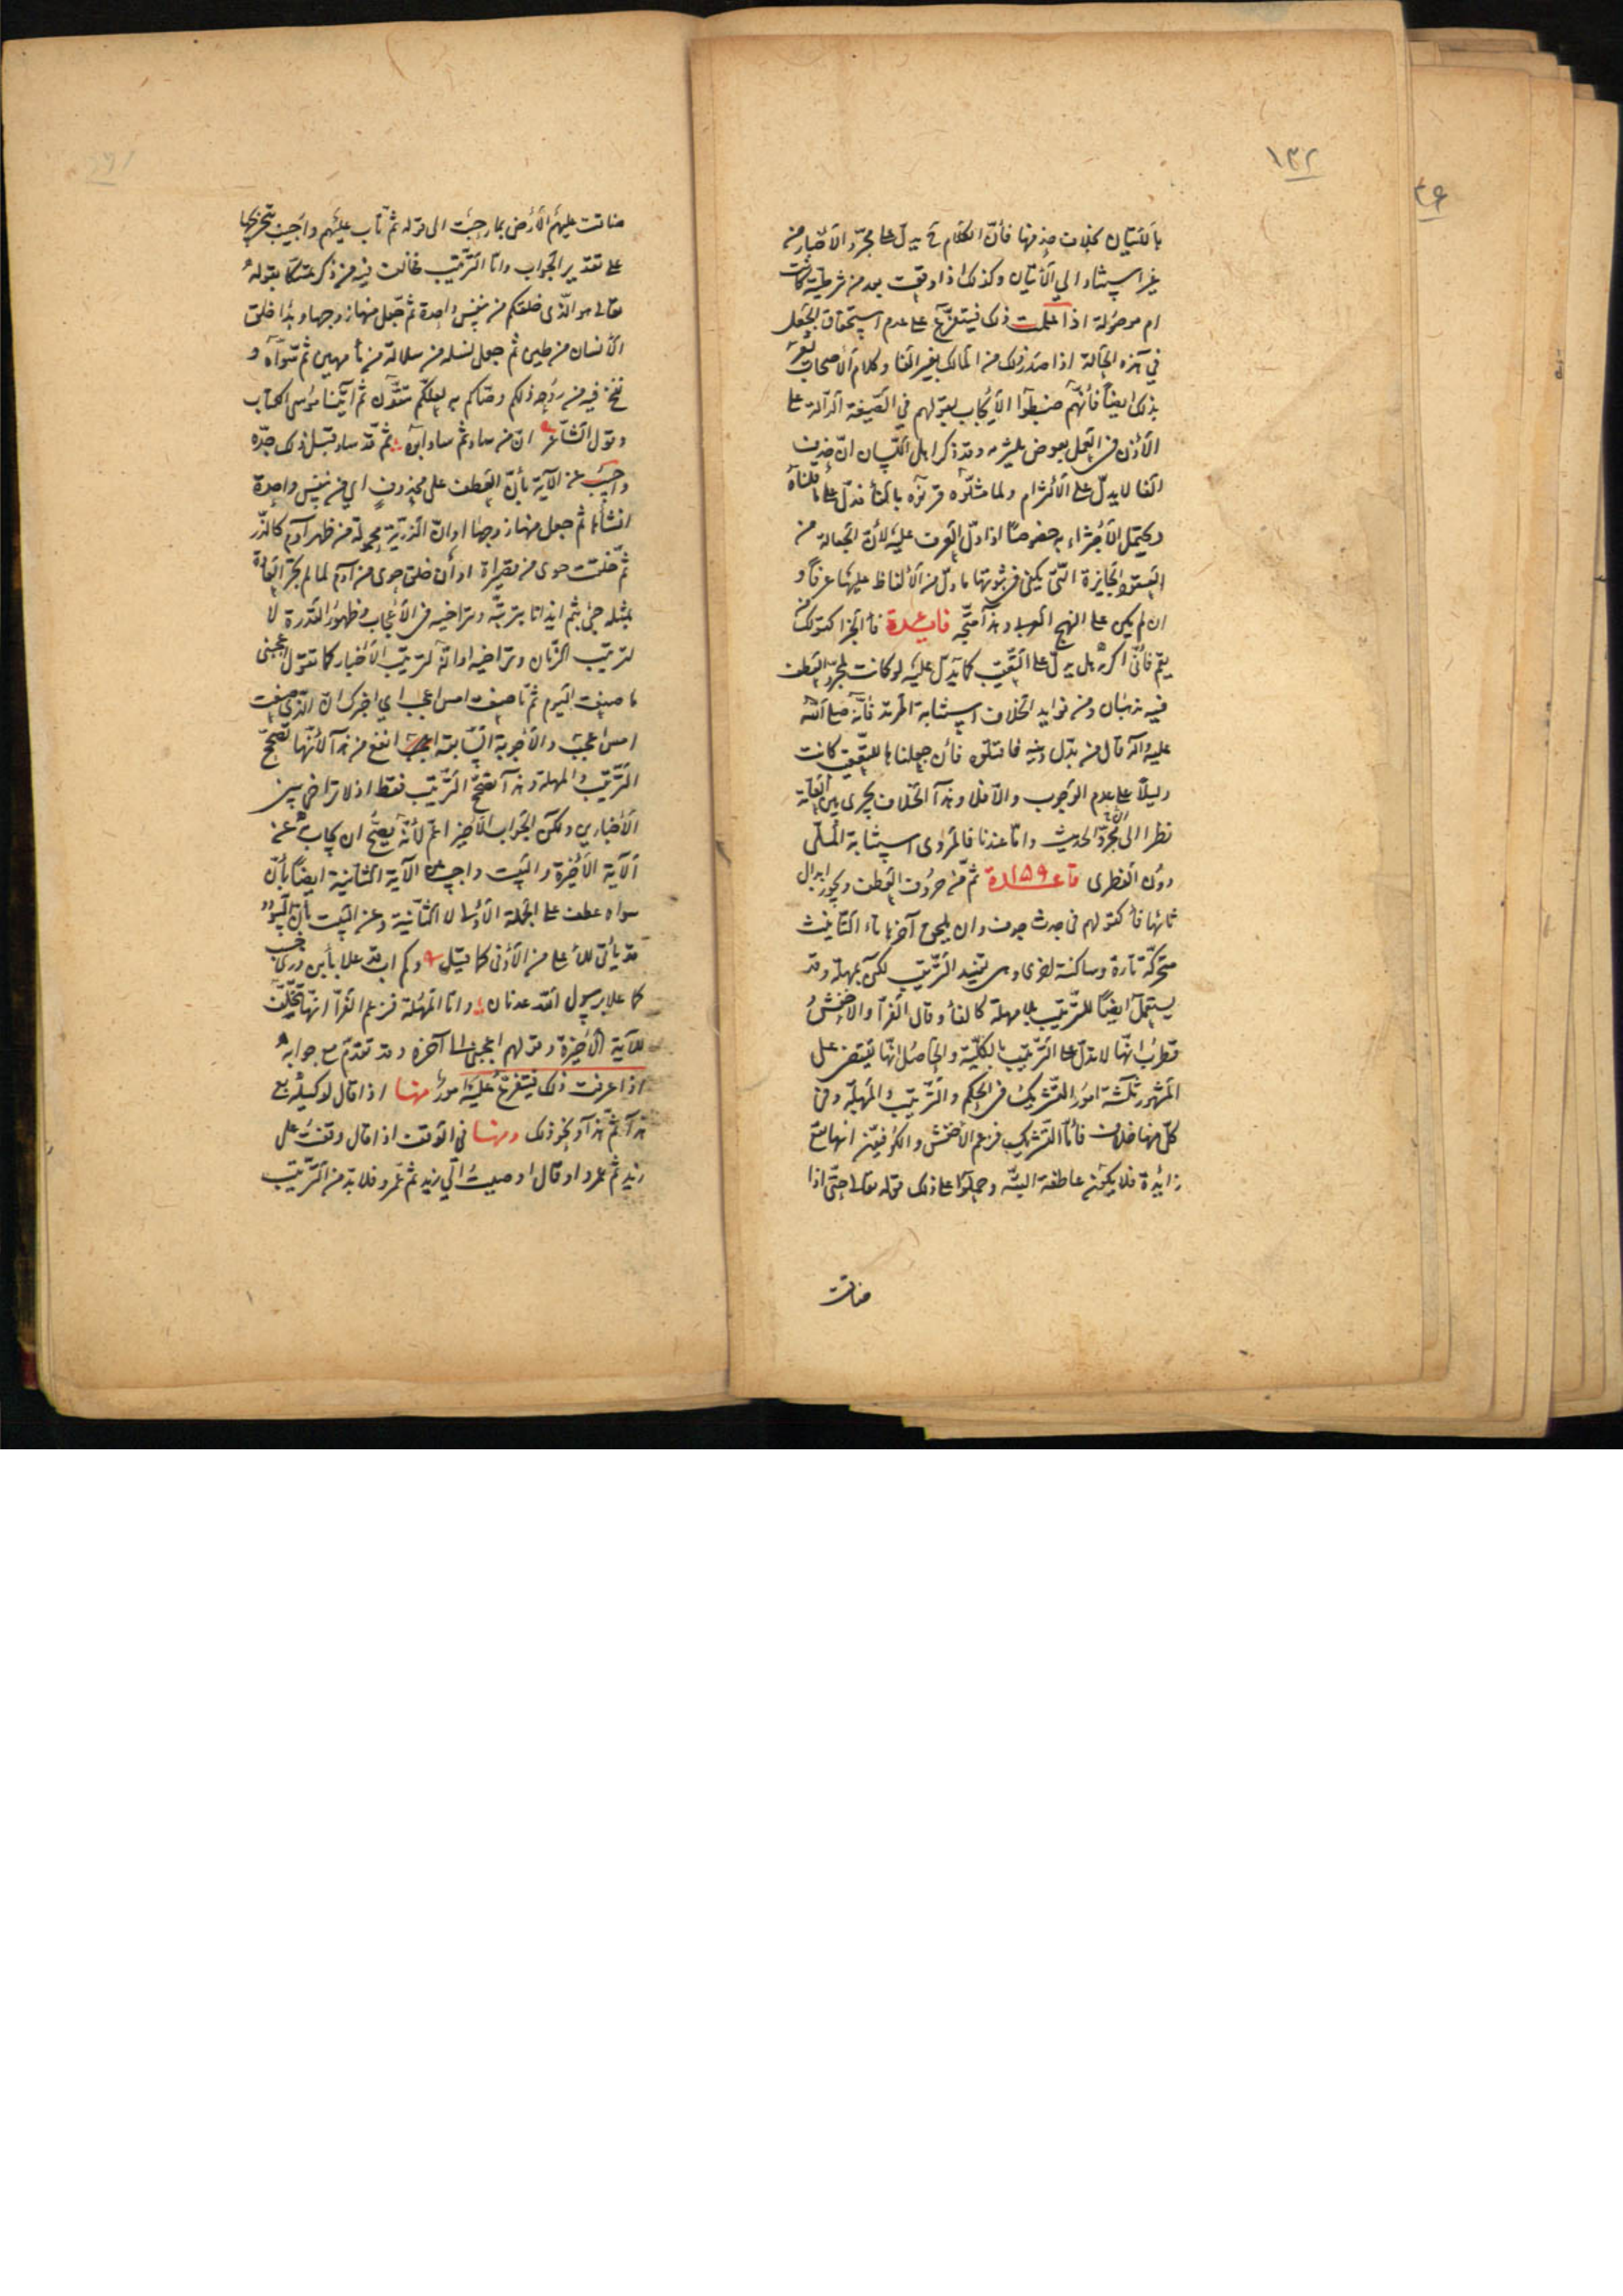 ١٣٢
بالاتيان بخلاف حذفها فان الكلام ح يدل على مجرد الاخبار من
غير استناد الى الاتيان وكذلك اذا وقعت بعد من شرطية كانت
ام موصولة اذا علمت ذلك فيتفرع على عدم استحقاق الجعل
في هذه الحالة اذا صدر ذلك من المالك بغير الفا وكلام الاصحاب
بذلك ايضا فانهم ضبطوا الايجاب بقولهم في الصيغة الدالة على
الاذن في العمل بعوض يلتزمه وقد ذكر اهل اللسان ان حذف
الفا لا يدل على الالتزام ولما مثلوه قرنوه بالفا فدل على ما قلناه
ويحتمل الاجتزاء به خصوصا اذا دل العرف عليه لان الجعالة من
العقود الجايزة التي يكفي في ثبوتها ما دل من الالفاظ عليها عرفا و
ان لم يكن على النهج العربي وهذا متجه فايدة فا الجزا كقولك من
يقم فاني اكرمه هل يدل على التعقيب كما يدل عليه لو كانت لمجرد العطف
فيه مذهبان ومن فوايد الخلاف استتابة المرتد فانه صلى الله
عليه وآله قال من بدل دينه فاقتلوه فان جعلناها للتعقيب كانت
دليلا على عدم الوجوب والا فلا وهذا الخلاف يجري بين العامة
نظرا الى مجرد الحديث واما عندنا فالمروى استتابة الملي
دون الفطرى قاعدة ١٥٩ ثم من حروف العطف ويجوز ابدال
ثائها فا كقولهم في جدث جدف وان يلحق آخرها تاء التانيث
متحركة تارة وساكنة اخرى وهي تفيد الترتيب لكن بمهلة وقد
يستعمل ايضا للترتيب بلا مهلة كالفا وقال الفرا والاخفش و
قطرب انها لا تدل على الترتيب بالكلية والحاصل انها تقتضى على
المشهور ثلثة امور التشريك في الحكم والترتيب والمهلة وفي
كل منها خلاف فاما التشريك فزعم الاخفش والكوفيين انها تقع
زايدة فلا يكون عاطفة البتة وحملوا على ذلك قوله تعالى حتى اذا
ضاقت
ضاقت عليهم الارض بما رحبت الى قوله ثم تاب عليهم واجيب بتخريجها
على تقدير الجواب واما الترتيب فخالف فيه من ذكر متمسكا بقوله
تعالى هو الذى خلقكم من نفس واحدة ثم جعل منها زوجها وبدا خلق
الانسان من طين ثم جعل نسله من سلالة من ما مهين ثم سواه و
نفخ فيه من روحه ذلكم وصاكم به لعلكم تتقون ثم اتينا موسى الكتاب
وقول الشاعر ان من ساد ثم ساد ابوه ثم قد ساد قبل ذلك جده
واجيب عن الآية بان العطف على محذوف اي من نفس واحدة
انشأها ثم جعل منها زوجها او ان الذرية محمولة من ظهر آدم كالذر
ثم خلقت حوى من قصيراه او ان خلق حوى من آدم لما لم تجر العادة
بمثله جئ بثم ايذانا بترتبه وتراخيه في الاعجاب وظهور القدرة لا
لترتيب الزمان وتراخيه او انه لترتيب الاخبار كما تقول اعجبنى
ما صنعت اليوم ثم ما صنعت امس اعجب اي اخبرك ان الذى صنعت
امس اعجب والاجوبة السابقة انفع من هذا لانها تصحح
الترتيب والمهلة وهذا تصحح الترتيب فقط اذ لا تراخى بين
الاخبارين ولكن الجواب الاخير اعم لانه يصح ان يجاب به عن
الآية الاخيرة والبيت واجيب عن الآية الثانية ايضا بان
سواه عطف على الجملة الاولى لا الثانية وعن البيت بان السؤدد
قد يأتى للاعلى من الادنى كما قيل وكم اب قد علا بابن ذرى حسب
كما علا برسول الله عدنان واما المهلة فزعم الفرا انها تتخلف
للآية الاخيرة وقولهم اعجبنى الى آخره وقد تقدم مع جوابه
اذا عرفت ذلك فيتفرع عليه امور منها اذا قال لوكيله بع
هذا ثم هذا ونحو ذلك ومنها في الوقف اذا قال وقفت على
زيد ثم عمرو او قال اوصيت الى زيد ثم عمرو فلا بد من الترتيب